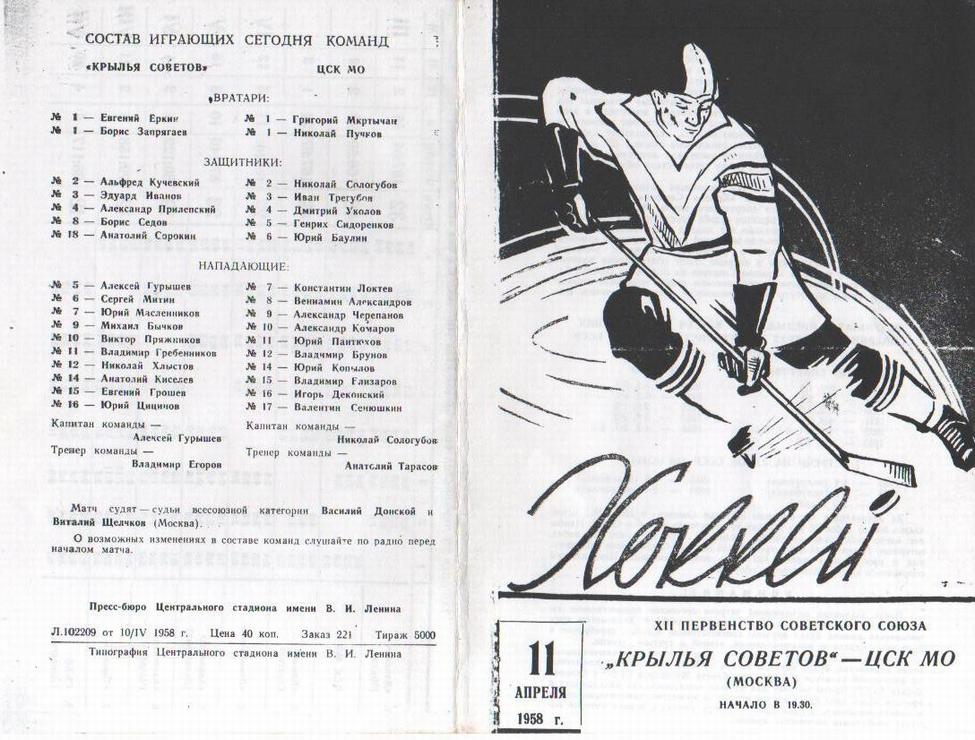 СОСТАВ ИГРАЮЩИХ СЕГОДНЯ КОМАНД
«КРЫЛЬЯ СОВЕТОВ» ЦСК МО
ВРАТАРИ:
№ 1 — Евгений Еркин № 1 — Григорий Мкртычан
№ 1 — Борис Запрягаев № 1 — Николай Пучков
ЗАЩИТНИКИ:
№ 2 — Альфред Кучевский № 2 — Николай Сологубов
№ 3 — Эдуард Иванов № 3 — Иван Трегубов
№ 4 — Александр Прилепский № 4 — Дмитрий Уколов
№ 8 — Борис Седов № 5 — Генрих Сидоренков
№ 18 — Анатолий Сорокин № 6 — Юрий Баулин
НАПАДАЮЩИЕ:
№ 5 — Алексей Гурышев № 7 — Константин Локтев
№ 6 — Сергей Митин № 8 — Вениамин Александров
№ 7 — Юрий Масленников № 9 — Александр Черепанов
№ 9 — Михаил Бычков № 10 — Александр Комаров
№ 10 — Виктор Пряжников № 11 — Юрий Пантюхов
№ 11 — Владимир Гребенников № 12 — Владимир Брунов
№ 12 — Николай Хлыстов № 14 — Юрий Копылов
№ 14 — Анатолий Киселев № 15 — Владимир Елизаров
№ 15 — Евгений Грошев № 16 — Игорь Деконский
№ 16 — Юрий Цицинов № 17 — Валентин Сенюшкин
Капитан команды — Капитан команды —
Алексей Гурышев Николай Сологубов
Тренер команды — Тренер команды —
Владимир Егоров Анатолий Тарасов
Матч судят — судьи всесоюзной категории Василий Донской и
Виталий Щелчков (Москва).
О возможных изменениях в составе команд слушайте по радио перед
началом матча.
Пресс-бюро Центрального стадиона имени В. И. Ленина
Л.102209 от 10/IV 1958 г. Цена 40 коп. Заказ 221 Тираж 5000
Типография Центрального стадиона имени В. И. Ленина
Хоккей
XII ПЕРВЕНСТВО СОВЕТСКОГО СОЮЗА
11
АПРЕЛЯ
1958 г.
„КРЫЛЬЯ СОВЕТОВ“ — ЦСК МО
(МОСКВА)
НАЧАЛО В 19.30.